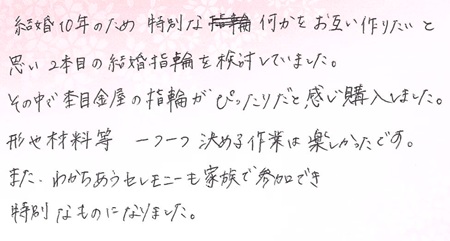 結婚10年のため 特別な 何かをお互い作りたいと
思い 2本目の結婚指輪を検討していました。
その中で杢目金屋の指輪がぴったりだと感じ購入しました。
形や材料等 一つ一つ 決める作業は楽しかったです。
また、わかちあうセレモニーも家族で参加でき
特別なものになりました。